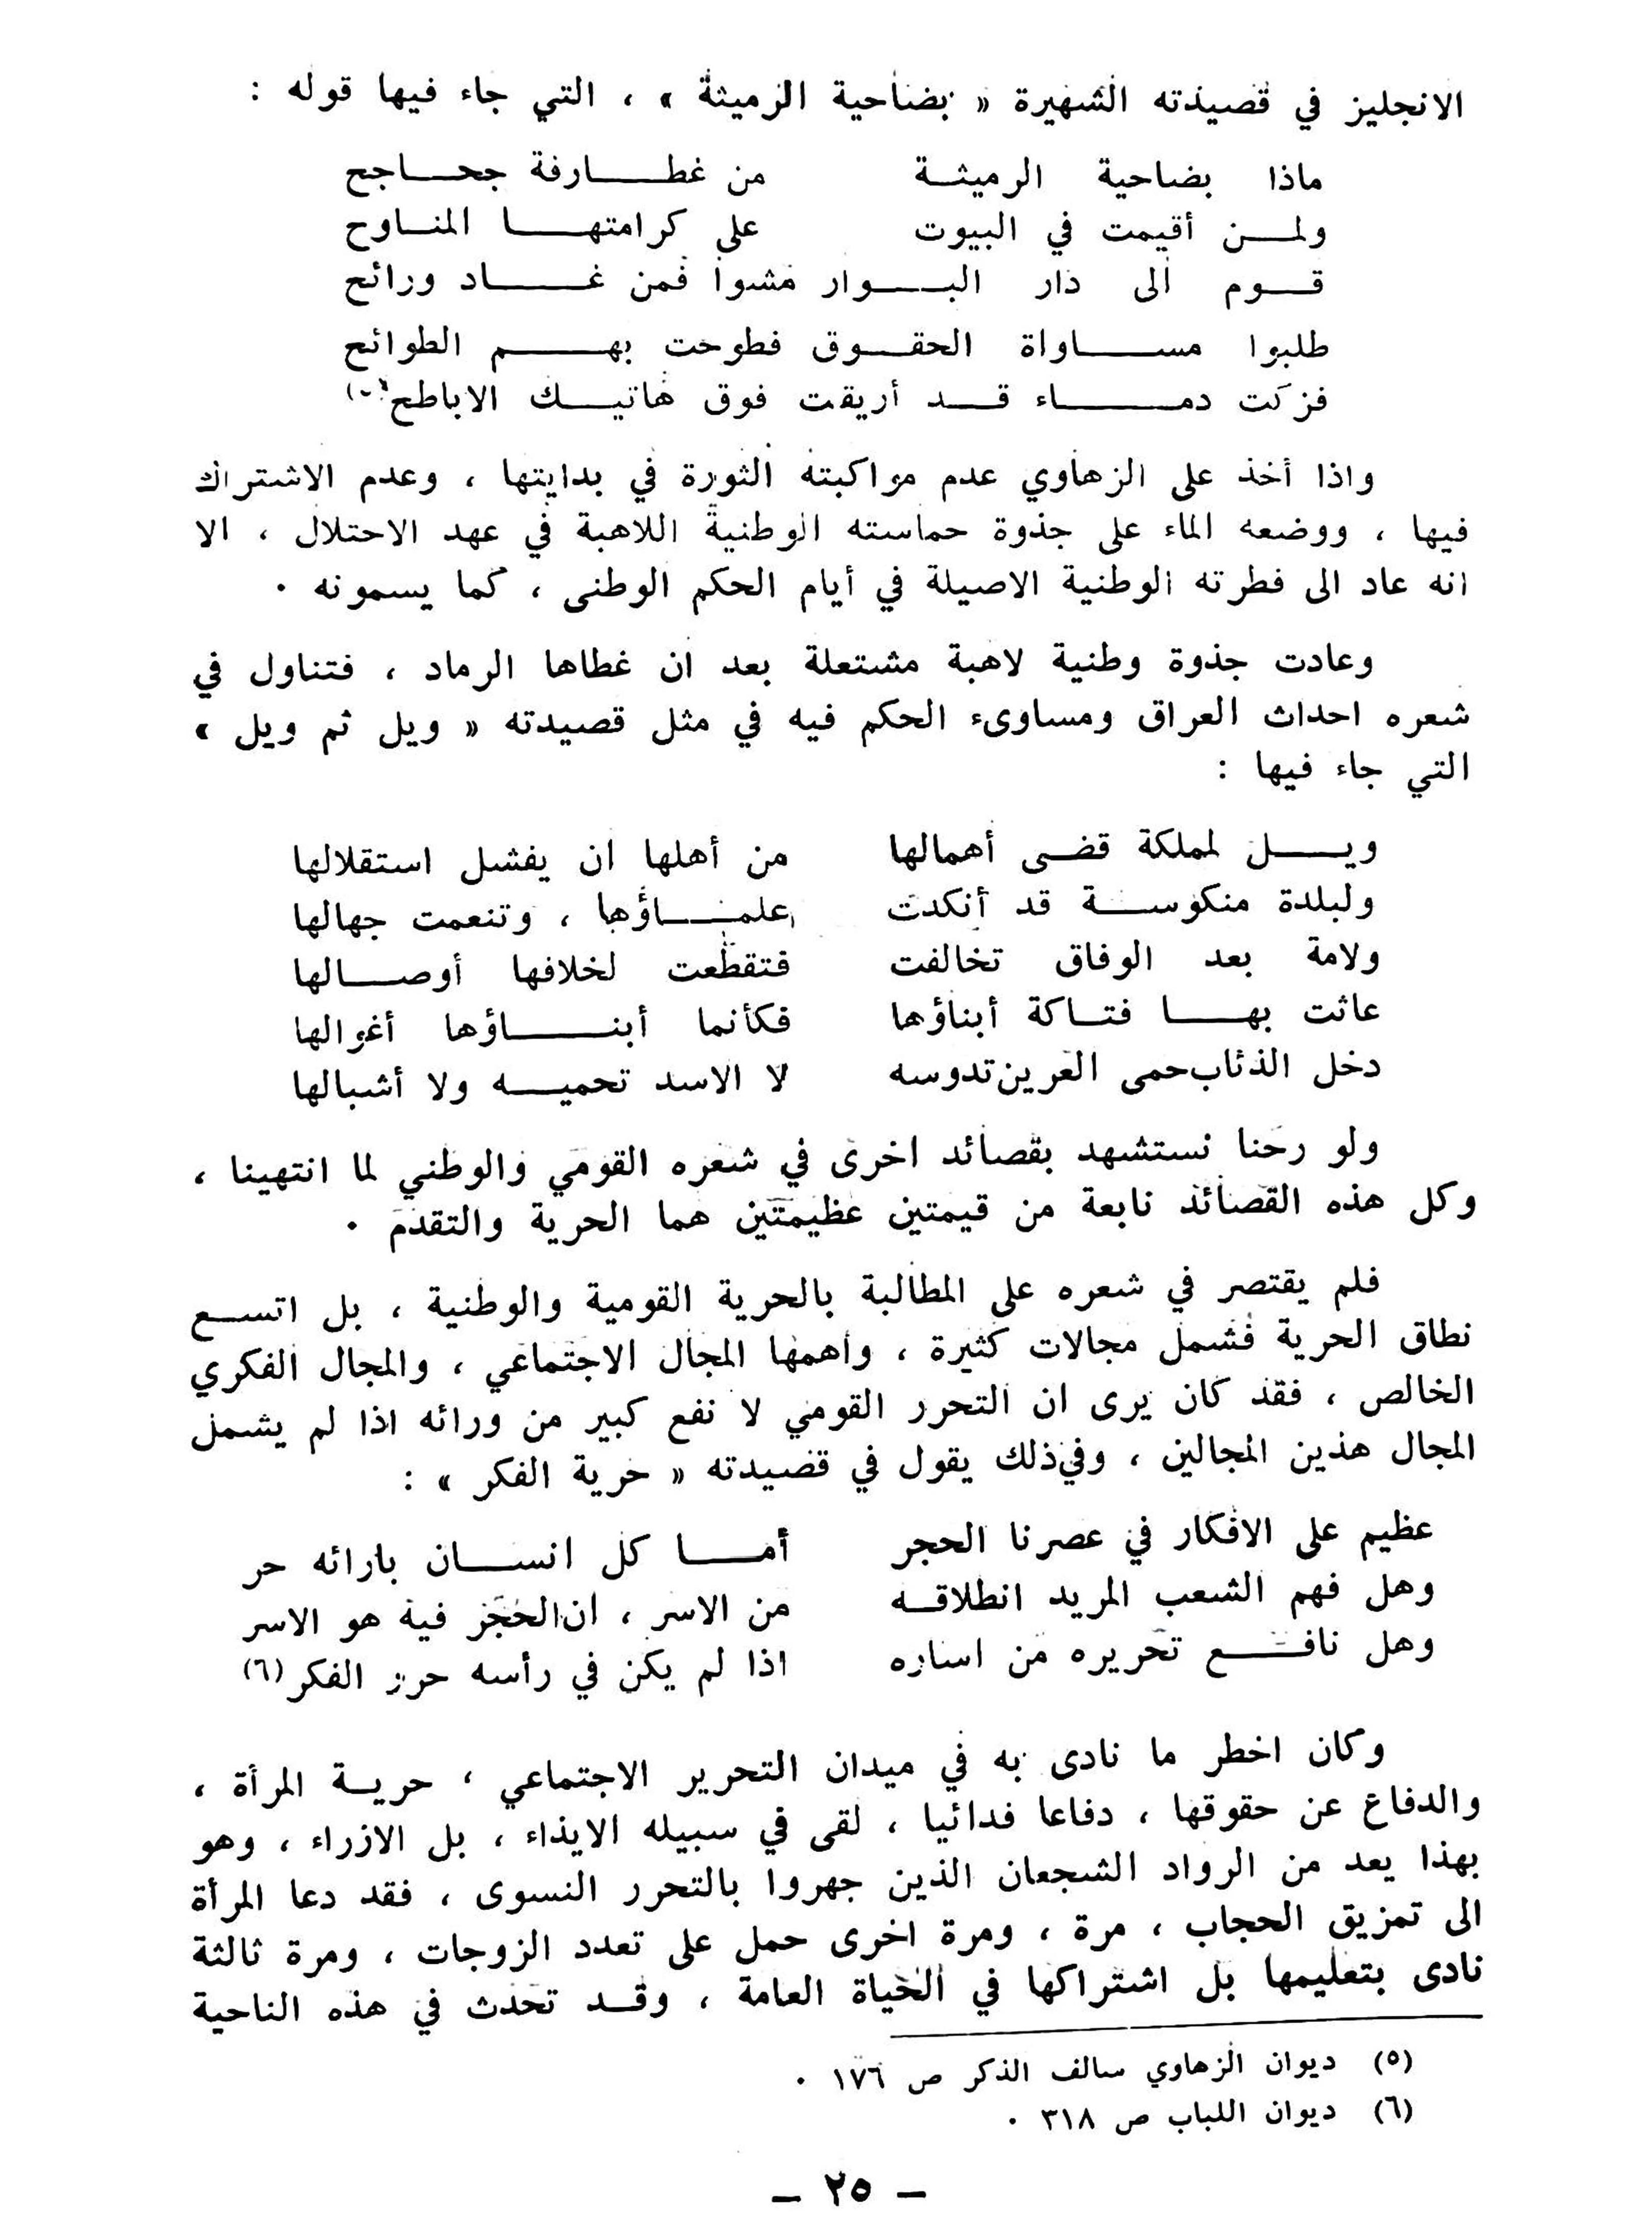 الانجليز في قصيدته الشهيرة « بضاحية الرميثة » ، التي جاء فيها قوله :
ماذا بضاحية الرميثة من غطارفة جحاجح
ولمن أقيمت في البيوت على كرامتها المناوح
قوم الى دار البوار مشوا فمن غاد ورائح
طلبوا مساواة الحقوق فطوحت بهم الطوائح
فزكت دماء قد أريقت فوق هاتيك الاباطح
واذا أخذ على الزهاوي عدم مواكبته الثورة في بدايتها ، وعدم الاشتراك
فيها ، ووضعه الماء على جذوة حماسته الوطنية اللاهبة في عهد الاحتلال ، الا
انه عاد الى فطرته الوطنية الاصيلة في أيام الحكم الوطنى ، كما يسمونه .
وعادت جذوة وطنية لاهبة مشتعلة بعد ان غطاها الرماد ، فتناول في
شعره احداث العراق ومساوىء الحكم فيه في مثل قصيدته « ويل ثم ويل »
التي جاء فيها :
ويل لمملكة قضى أهمالها من أهلها ان يفشل استقلالها
ولبلدة منكوسة قد أنكدت علماؤها ، وتنعمت جهالها
ولامة بعد الوفاق تخالفت فتقطعت لخلافها أوصالها
عاثت بها فتاكة أبناؤها فكأنما أبناؤها أغوالها
دخل الذئاب حمى العرين تدوسه لا الاسد تحميه ولا أشبالها
ولو رحنا نستشهد بقصائد اخرى في شعره القومي والوطني لما انتهينا ،
وكل هذه القصائد نابعة من قيمتين عظيمتين هما الحرية والتقدم .
فلم يقتصر في شعره على المطالبة بالحرية القومية والوطنية ، بل اتسع
نطاق الحرية فشمل مجالات كثيرة ، واهمها المجال الاجتماعي ، والمجال الفكري
الخالص ، فقد كان يرى ان التحرر القومي لا نفع كبير من ورائه اذا لم يشمل
المجال هذين المجالين ، وفي ذلك يقول في قصيدته « حرية الفكر » :
عظيم على الافكار في عصرنا الحجر أما كل انسان بارائه حر
وهل فهم الشعب المريد انطلاقه من الاسر ، ان الحجر فيه هو الاسر
وهل نافع تحريره من اساره اذا لم يكن في رأسه حرر الفكر (٦)
وكان اخطر ما نادى به في ميدان التحرير الاجتماعي ، حرية المرأة ،
والدفاع عن حقوقها ، دفاعا فدائيا ، لقى في سبيله الايذاء ، بل الازراء ، وهو
بهذا يعد من الرواد الشجعان الذين جهروا بالتحرر النسوى ، فقد دعا المرأة
الى تمزيق الحجاب ، مرة ، ومرة اخرى حمل على تعدد الزوجات ، ومرة ثالثة
نادى بتعليمها بل اشتراكها في الحياة العامة ، وقد تحدث في هذه الناحية
(٥) ديوان الزهاوي سالف الذكر ص ١٧٦ .
(٦) ديوان اللباب ص ٣١٨ .
– ٢٥ –